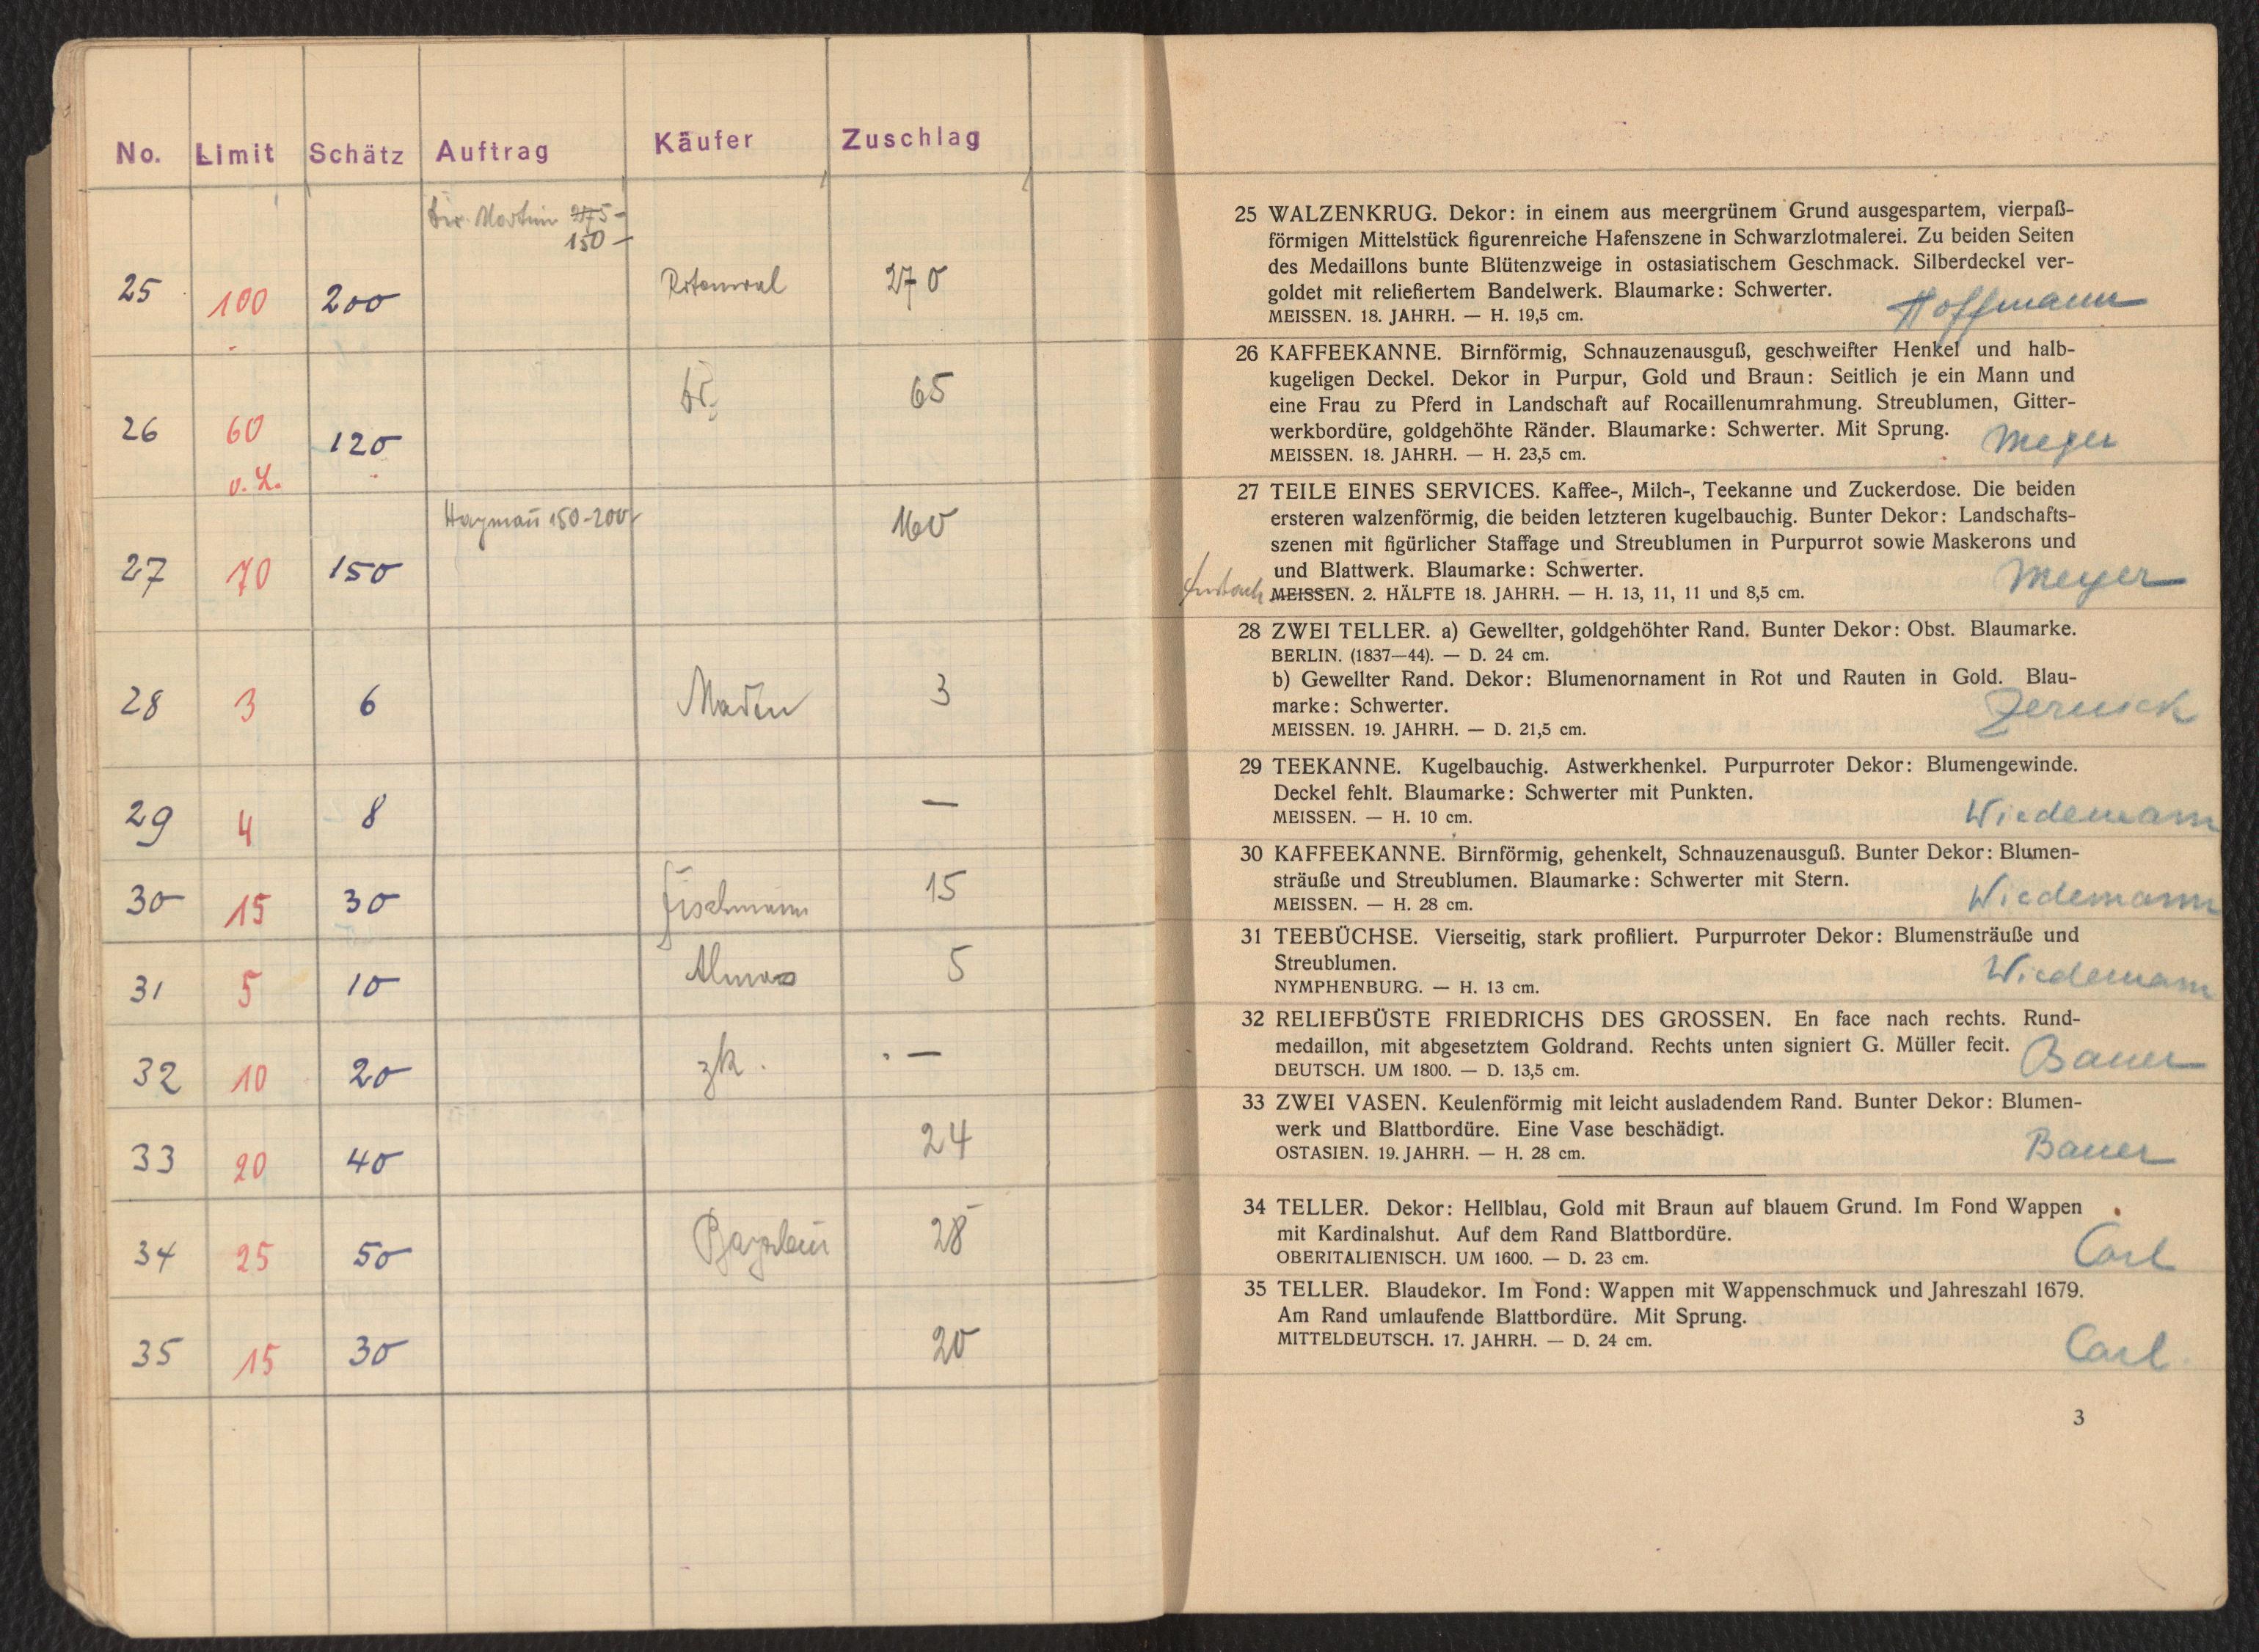 No. Limit Schätz Auftrag Käufer Zuschlag
150 –
25 100 200 270
26 60 120 65
v. L.
150-200
27 70 150 160
28 3 6 3
29 4 8 —
30 15 30 15
31 5 10 5
32 10 20 zk. . —
33 20 40 24
34 25 50 28
35 15 30 20
25 WALZENKRUG. Dekor: in einem aus meergrünem Grund ausgespartem, vierpaß-
förmigen Mittelstück figurenreiche Hafenszene in Schwarzlotmalerei. Zu beiden Seiten
des Medaillons bunte Blütenzweige in ostasiatischem Geschmack. Silberdeckel ver-
goldet mit reliefiertem Bandelwerk. Blaumarke: Schwerter.
MEISSEN. 18. JAHRH. — H. 19,5 cm.
Hoffmann
26 KAFFEEKANNE. Birnförmig, Schnauzenausguß, geschweifter Henkel und halb-
kugeligen Deckel. Dekor in Purpur, Gold und Braun: Seitlich je ein Mann und
eine Frau zu Pferd in Landschaft auf Rocaillenumrahmung. Streublumen, Gitter-
werkbordüre, goldgehöhte Ränder. Blaumarke: Schwerter. Mit Sprung.
MEISSEN. 18. JAHRH. — H. 23,5 cm.
Meyer
27 TEILE EINES SERVICES. Kaffee-, Milch-, Teekanne und Zuckerdose. Die beiden
ersteren walzenförmig, die beiden letzteren kugelbauchig. Bunter Dekor: Landschafts-
szenen mit figürlicher Staffage und Streublumen in Purpurrot sowie Maskerons und
und Blattwerk. Blaumarke: Schwerter.
MEISSEN. 2. HÄLFTE 18. JAHRH. — H. 13, 11, 11 und 8,5 cm.
Meyer
28 ZWEI TELLER. a) Gewellter, goldgehöhter Rand. Bunter Dekor: Obst. Blaumarke.
BERLIN. (1837—44). — D. 24 cm.
b) Gewellter Rand. Dekor: Blumenornament in Rot und Rauten in Gold. Blau-
marke: Schwerter.
MEISSEN. 19. JAHRH. — D. 21,5 cm.
29 TEEKANNE. Kugelbauchig. Astwerkhenkel. Purpurroter Dekor: Blumengewinde.
Deckel fehlt. Blaumarke: Schwerter mit Punkten.
MEISSEN. — H. 10 cm.
Wiedemann
30 KAFFEEKANNE. Birnförmig, gehenkelt, Schnauzenausguß. Bunter Dekor: Blumen-
sträuße und Streublumen. Blaumarke: Schwerter mit Stern.
MEISSEN. — H. 28 cm.
Wiedemann
31 TEEBÜCHSE. Vierseitig, stark profiliert. Purpurroter Dekor: Blumensträuße und
Streublumen.
NYMPHENBURG. — H. 13 cm.
Wiedemann
32 RELIEFBÜSTE FRIEDRICHS DES GROSSEN. En face nach rechts. Rund-
medaillon, mit abgesetztem Goldrand. Rechts unten signiert G. Müller fecit.
DEUTSCH. UM 1800. — D. 13,5 cm.
Bauer
33 ZWEI VASEN. Keulenförmig mit leicht ausladendem Rand. Bunter Dekor: Blumen-
werk und Blattbordüre. Eine Vase beschädigt.
OSTASIEN. 19. JAHRH. — H. 28 cm.
Bauer
34 TELLER. Dekor: Hellblau, Gold mit Braun auf blauem Grund. Im Fond Wappen
mit Kardinalshut. Auf dem Rand Blattbordüre.
OBERITALIENISCH. UM 1600. — D. 23 cm.
Carl
35 TELLER. Blaudekor. Im Fond: Wappen mit Wappenschmuck und Jahreszahl 1679.
Am Rand umlaufende Blattbordüre. Mit Sprung.
MITTELDEUTSCH. 17. JAHRH. — D. 24 cm.
Carl
3